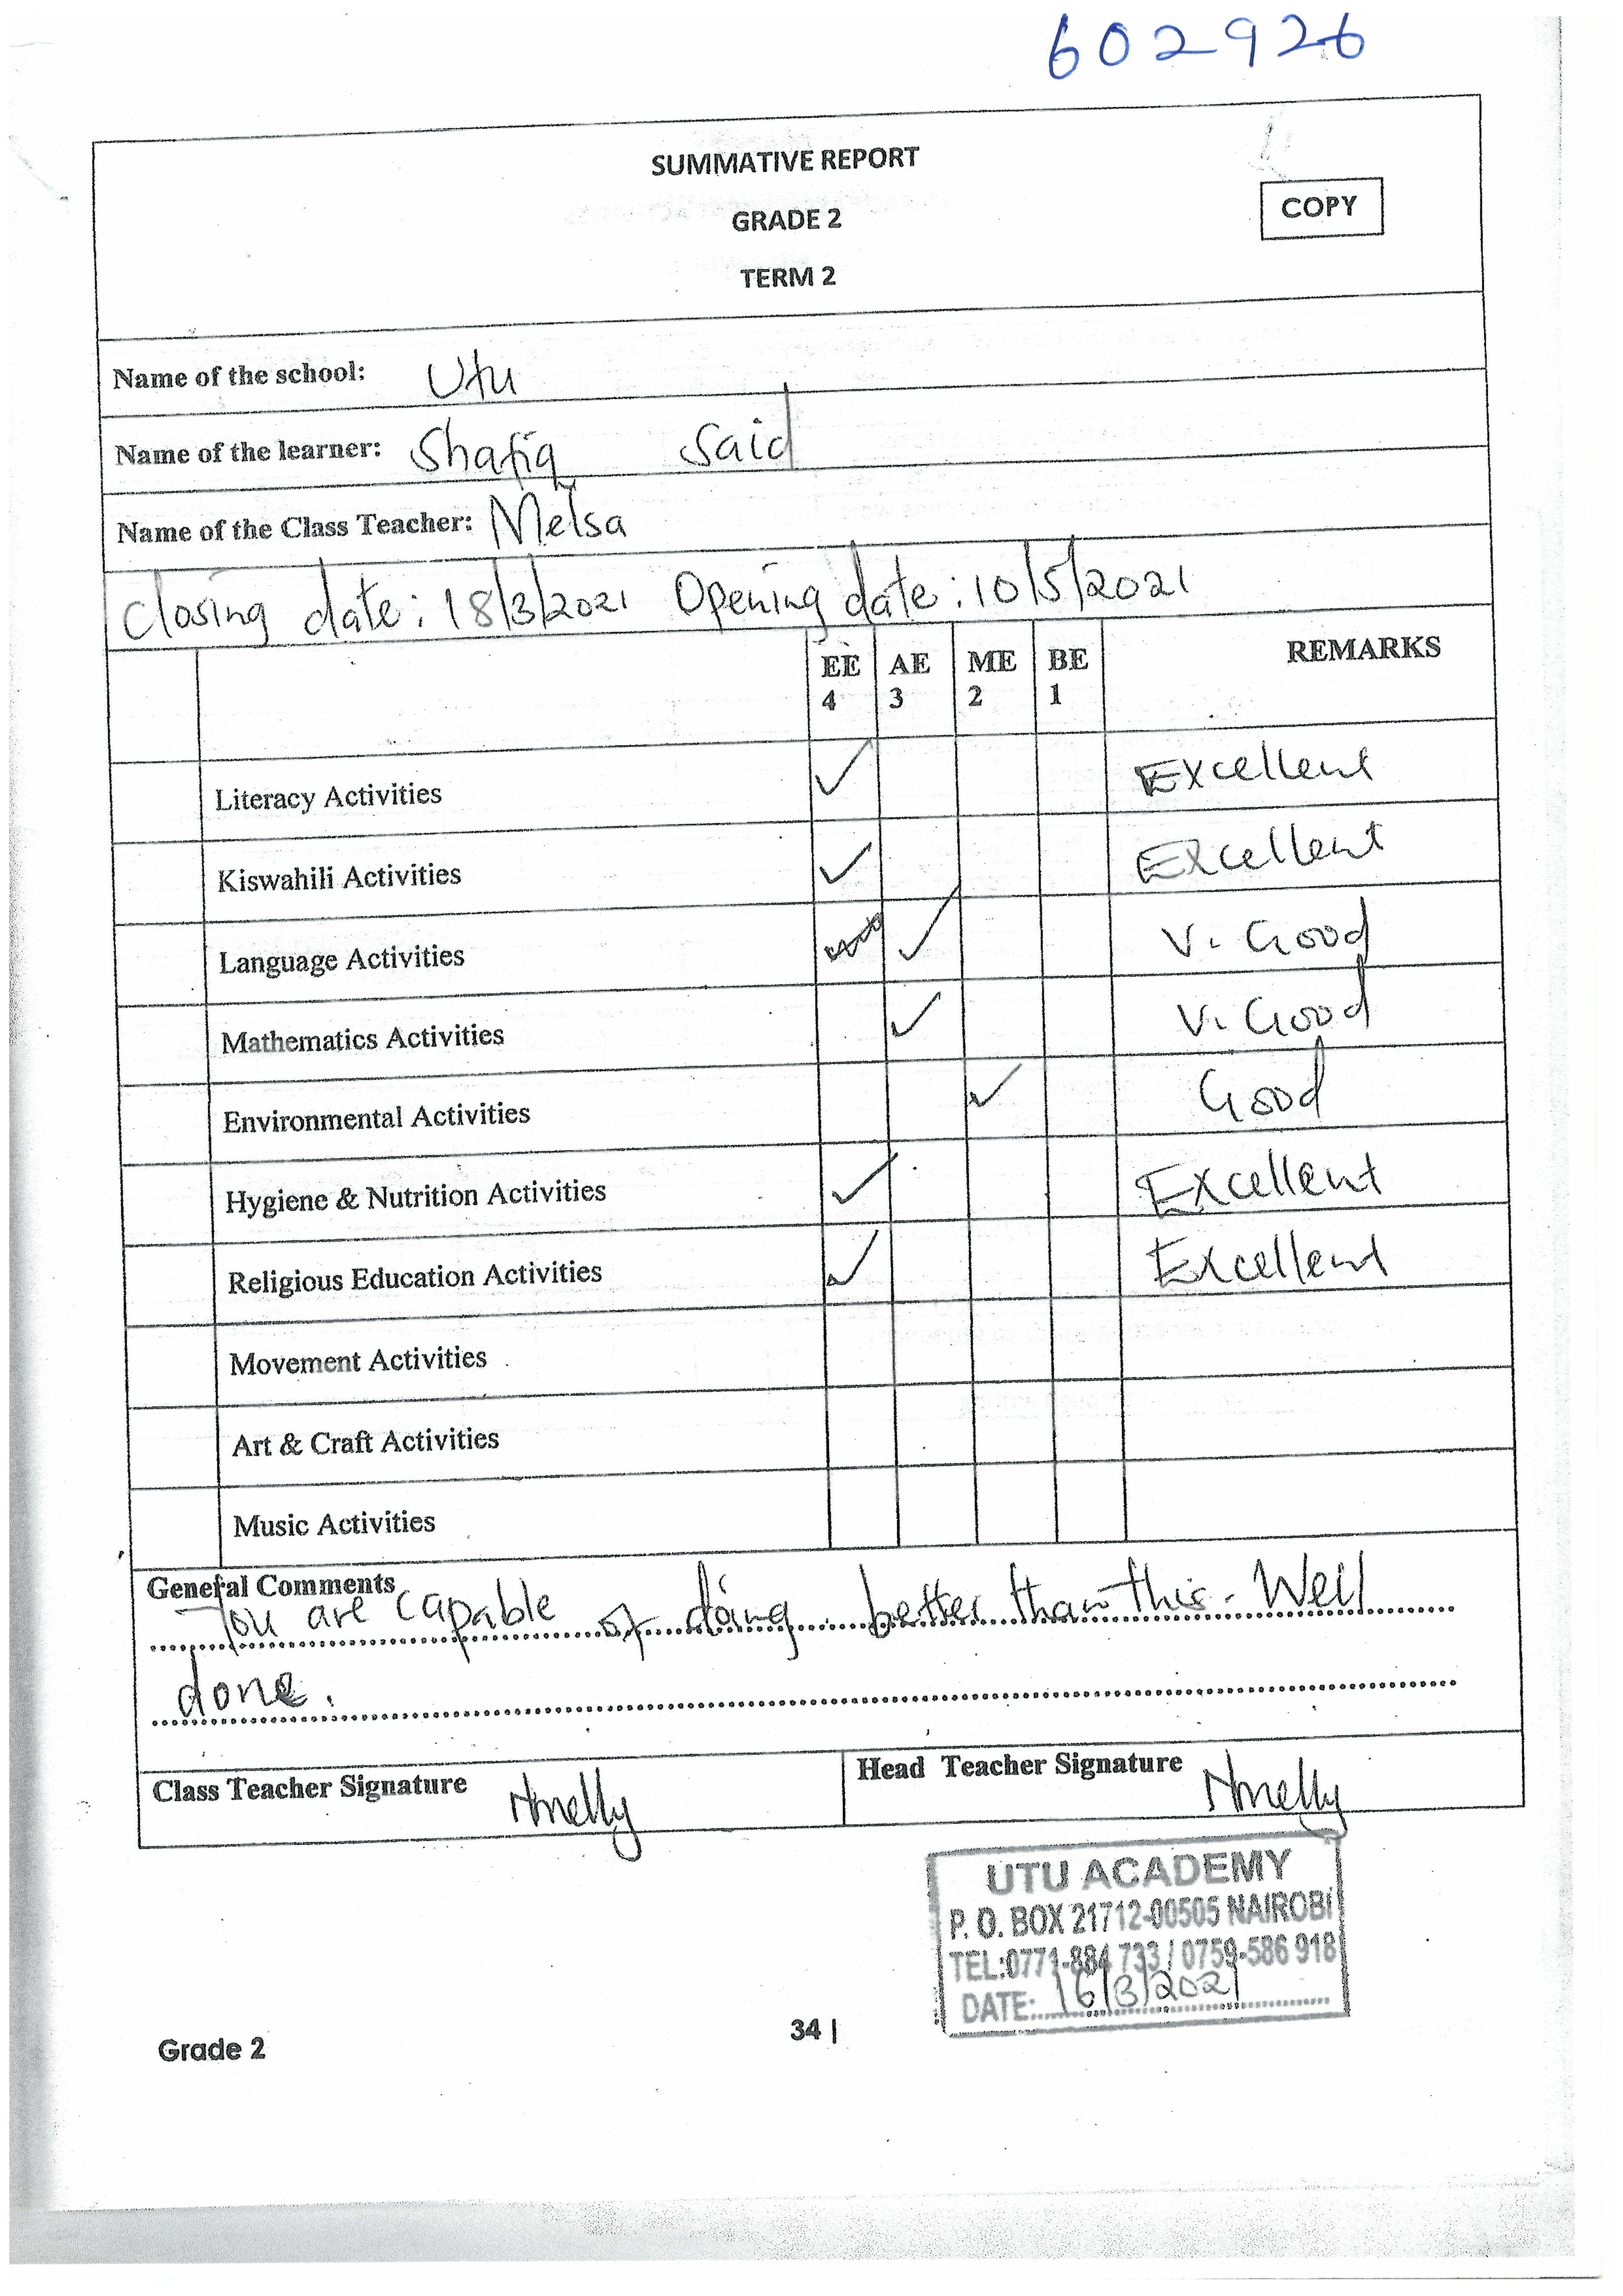 602926
SUMMATIVE REPORT
COPY
GRADE 2
TERM 2
Name of the school: Utu
Name of the learner: Shafiq Said
Name of the Class Teacher: Melsa
Closing date: 18/3/2021 Opening date: 10/5/2021
EE 4 AE 3 ME 2 BE 1 REMARKS
Literacy Activities ✓ Excellent
Kiswahili Activities ✓ Excellent
Language Activities ✓ V. Good
Mathematics Activities ✓ V. Good
Environmental Activities ✓ Good
Hygiene & Nutrition Activities ✓ Excellent
Religious Education Activities ✓ Excellent
Movement Activities
Art & Craft Activities
Music Activities
General Comments
You are capable of doing better than this. Well
done.
Class Teacher Signature Head Teacher Signature
UTU ACADEMY
P. O. BOX 21712-00505 NAIROBI
TEL:0771-884 733 / 0759-586 918
DATE: 16/3/2021
Grade 2 34 |